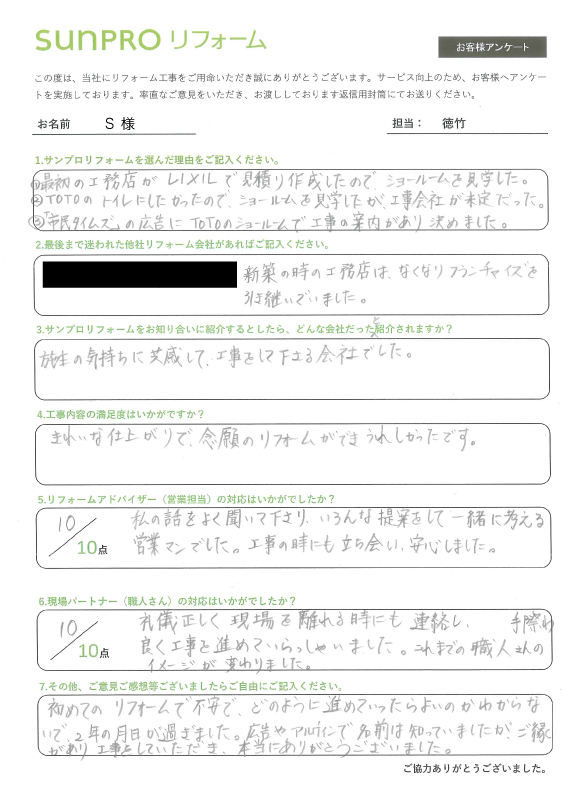 SUNPRO リフォーム
お客様アンケート
この度は、当社にリフォーム工事をご用命いただき誠にありがとうございます。サービス向上のため、お客様へアンケー
トを実施しております。率直なご意見をいただき、お渡ししております返信用封筒にてお送りください。
お名前 S 様 担当： 徳竹
1.サンプロリフォームを選んだ理由をご記入ください。
①最初の工務店がLIXILで見積り作成したので、ショールームを見学した。
②TOTOのトイレにしたかったので、ショールームを見学したが、工事会社が未定だった。
③「市民タイムズ」の広告にTOTOのショールームで工事の案内があり決めました。
2.最後まで迷われた他社リフォーム会社があればご記入ください。
新築の時の工務店は、なくなりフランチャイズを
引き継いでいました。
3.サンプロリフォームをお知り合いに紹介するとしたら、どんな会社だったと紹介されますか？
施主の気持ちに共感して、工事をして下さる会社でした。
4.工事内容の満足度はいかがですか？
きれいな仕上がりで、念願のリフォームができうれしかったです。
5.リフォームアドバイザー（営業担当）の対応はいかがでしたか？
10／10点
私の話をよく聞いて下さり、いろんな提案をして一緒に考える
営業マンでした。工事の時にも立ち会い、安心しました。
6.現場パートナー（職人さん）の対応はいかがでしたか？
10／10点
礼儀正しく現場を離れる時にも連絡し、手際わ
良く工事を進めていらっしゃいました。これまでの職人さんの
イメージが変わりました。
7.その他、ご意見ご感想等ございましたらご自由にご記入ください。
初めてのリフォームで不安で、どのように進めていったらよいのかわからな
いで、2年の月日が過ぎました。広告やアルウィンで名前は知っていましたが、ご縁
があり工事をしていただき、本当にありがとうございました。
ご協力ありがとうございました。